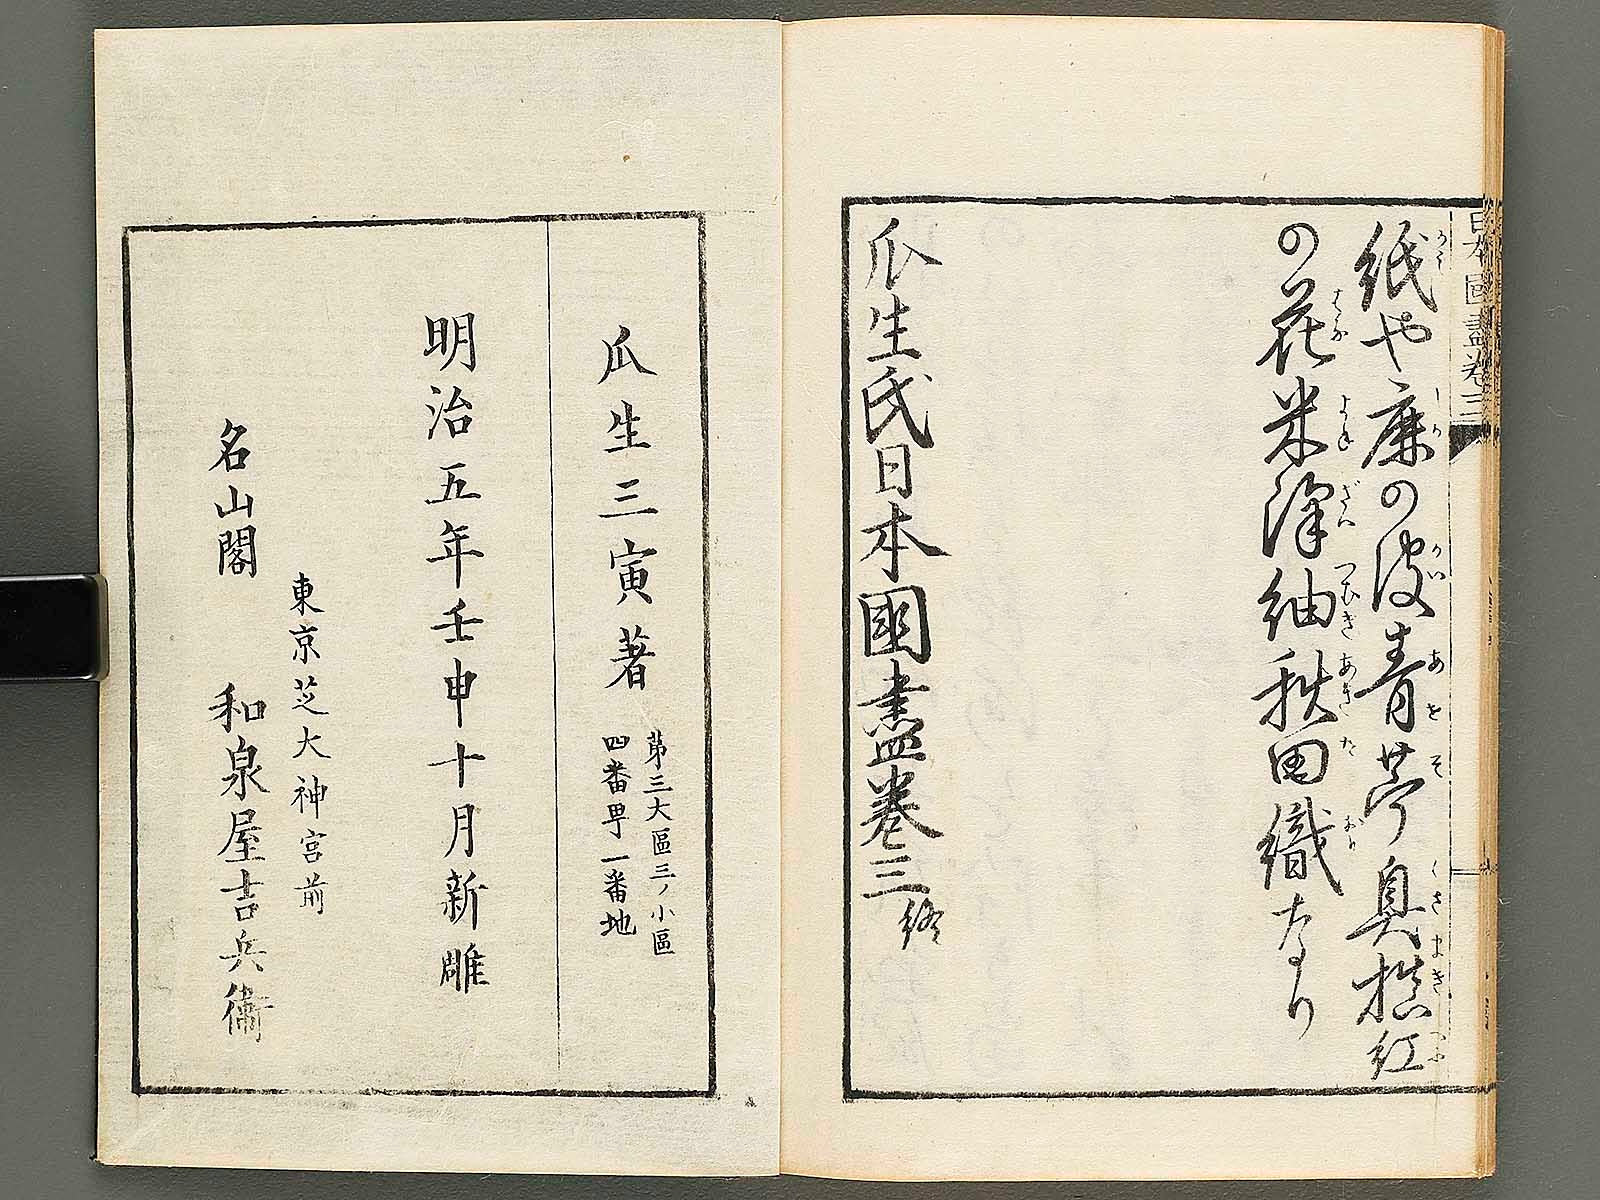 日本國盡卷三
紙や鹿の皮青苧真
紅
の花米澤紬秋田織なり
瓜生氏日本國盡卷三終
瓜生三寅著
第三大區三ノ小區
四番町一番地
明治五年壬申十月新雕
東京芝大神宮前
名山閣 和泉屋吉兵衛